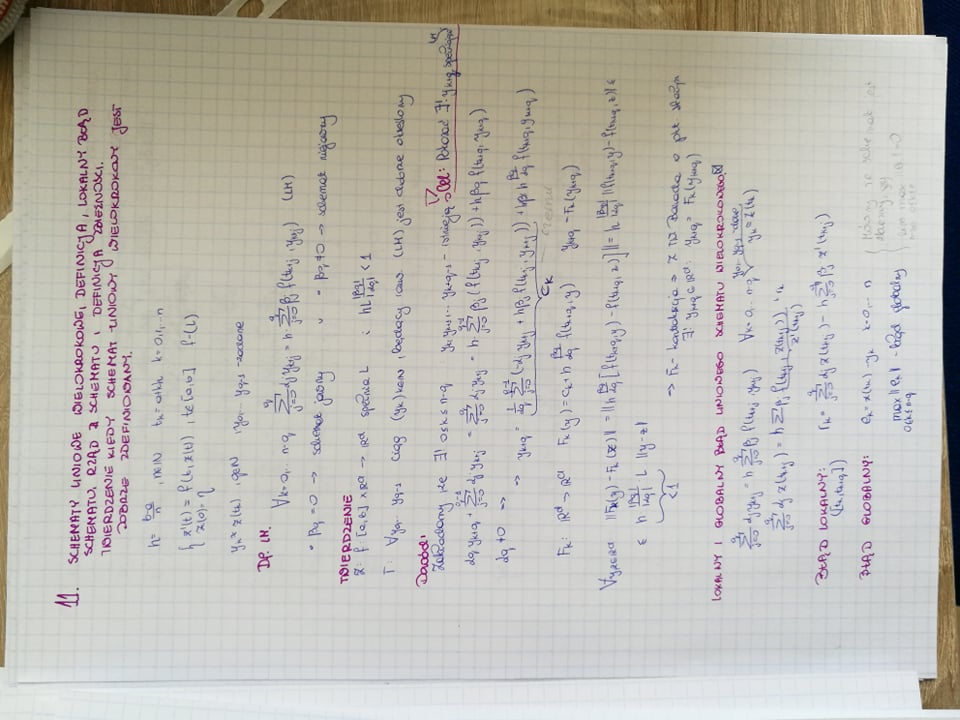 11. SCHEMATY LINIOWE WIELOKROKOWE, DEFINICJA, LOKALNY BŁĄD
SCHEMATU, RZĄD SCHEMATU I DEFINICJA ZBIEŻNOŚCI.
TWIERDZENIE KIEDY SCHEMAT LINIOWY WIELOKROKOWY JEST
DOBRZE ZDEFINIOWANY.
h = \frac{b-a}{n}, n∈ℕ t_k = a+kh k=0,1,...n
{ z'(t) = f(t, z(t)), t∈[a,b] f-(L)
z(0) = η
y_k ≈ z(t_k), q∈ℕ, y_0,... y_{q-1} - zadane
Df. LM.
∀k=0,... n-q \sum_{j=0}^{q} α_j y_{k+j} = h · \sum_{j=0}^{q} β_j f(t_{k+j}, y_{k+j}) (LM)
• β_q = 0 → schemat jawny v • β_q ≠ 0 → schemat niejawny
TWIERDZENIE
Z: f: [a,b] × ℝ^d → ℝ^d spełnia L i hL \frac{|β_q|}{|α_q|} < 1
T: ∀y_0... y_{q-1} ciąg (y_k)_{k∈ℕ}, będący rozw. (LM) jest dobrze określony
Dowód:
Zakładamy że ∃! 0≤k≤n-q y_k, y_{k+1},... y_{k+q-1} - istnieją Cel: Pokazać ∃! y_{k+q} spełniające LM
α_q y_{k+q} + \sum_{j=0}^{q-1} α_j y_{k+j} = \sum_{j=0}^{q} α_j y_{k+j} = h · \sum_{j=0}^{q-1} β_j (f(t_{k+j}, y_{k+j})) + hβ_q f(t_{k+q}, y_{k+q})
α_q ≠ 0 ⇒
⇒ y_{k+q} = \frac{1}{α_q} \sum_{j=0}^{q-1} (-α_j y_{k+j} + hβ_j f(t_{k+j}, y_{k+j})) + h \frac{β_q}{α_q} f(t_{k+q}, y_{k+q})
C_k
F_k: ℝ^d → ℝ^d F_k(y) = C_k + h \frac{β_q}{α_q} f(t_{k+q}, y) y_{k+q} - F_k(y_{k+q})
∀y,z∈ℝ^d ||F_k(y) - F_k(z)|| = ||h \frac{β_q}{α_q} [f(t_{k+q}, y) - f(t_{k+q}, z)]|| = h \frac{|β_q|}{|α_q|} ||f(t_{k+q}, y) - f(t_{k+q}, z)|| ≤
≤ h \frac{|β_q|}{|α_q|} L ||y-z||
<1
⇒ F_k - kontrakcja ⇒ z TW Banacha o pkt. stałym
∃! y_{k+q} ∈ ℝ^d: y_{k+q} = F_k(y_{k+q})
LOKALNY I GLOBALNY BŁĄD LINIOWEGO SCHEMATU WIELOKROKOWEGO
\sum_{j=0}^{q} α_j y_{k+j} = h \sum_{j=0}^{q} β_j f(t_{k+j}, y_{k+j}) ∀k=0,... n-q y_0,... y_{q-1} dane y_k ≈ z(t_k)
\sum_{j=0}^{q} α_j z(t_{k+j}) = h \sum β_j f(t_{k+j}, z(t_{k+j})) + r_k
z'(t_{k+j})
BŁĄD LOKALNY: r_k = \sum_{j=0}^{q} α_j z(t_{k+j}) - h \sum_{j=0}^{q} β_j z'(t_{k+j})
([t_k, t_{k+q}])
BŁĄD GLOBALNY: e_k = z(t_k) - y_k k=0,... n
max ||e_k|| - błąd globalny
0≤k≤n-q
Mówimy że schemat jest
zbieżny, gdy